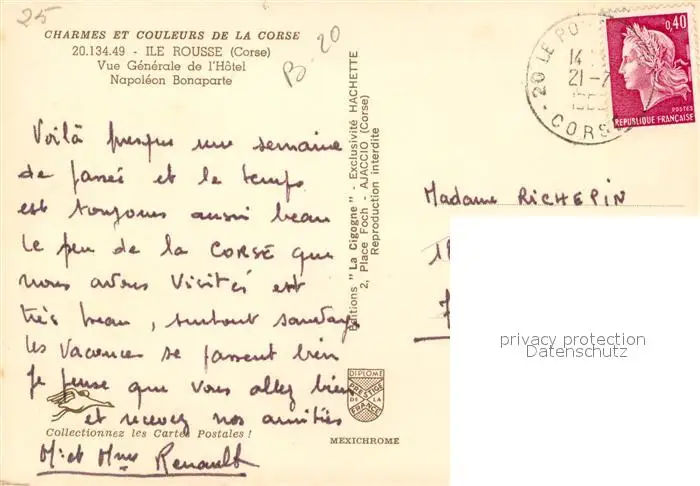 25
CHARMES ET COULEURS DE LA CORSE
20.134.49 - ILE ROUSSE (Corse)
Vue Générale de l'Hôtel
Napoléon Bonaparte
B-20
Voilà presque une semaine
de passée et le temps
est toujours aussi beau
Le peu de la CORSE que
nous avons visités est
très beau, surtout sauvage,
Les vacances se passent bien
Je pense que vous allez bien
et recevez nos amitiés
Mr et Mme Renault
Collectionnez les Cartes Postales !
Editions "La Cigogne" - Exclusivité HACHETTE
2, Place Foch - AJACCIO (Corse)
Reproduction interdite
DIPLOME
PRESTIGE
DE LA
FRANCE
MEXICHROME
20 LE PO
14
21-7
CORSE
0,40
POSTES
REPUBLIQUE FRANÇAISE
Madame RICHEPIN
privacy protection
Datenschutz